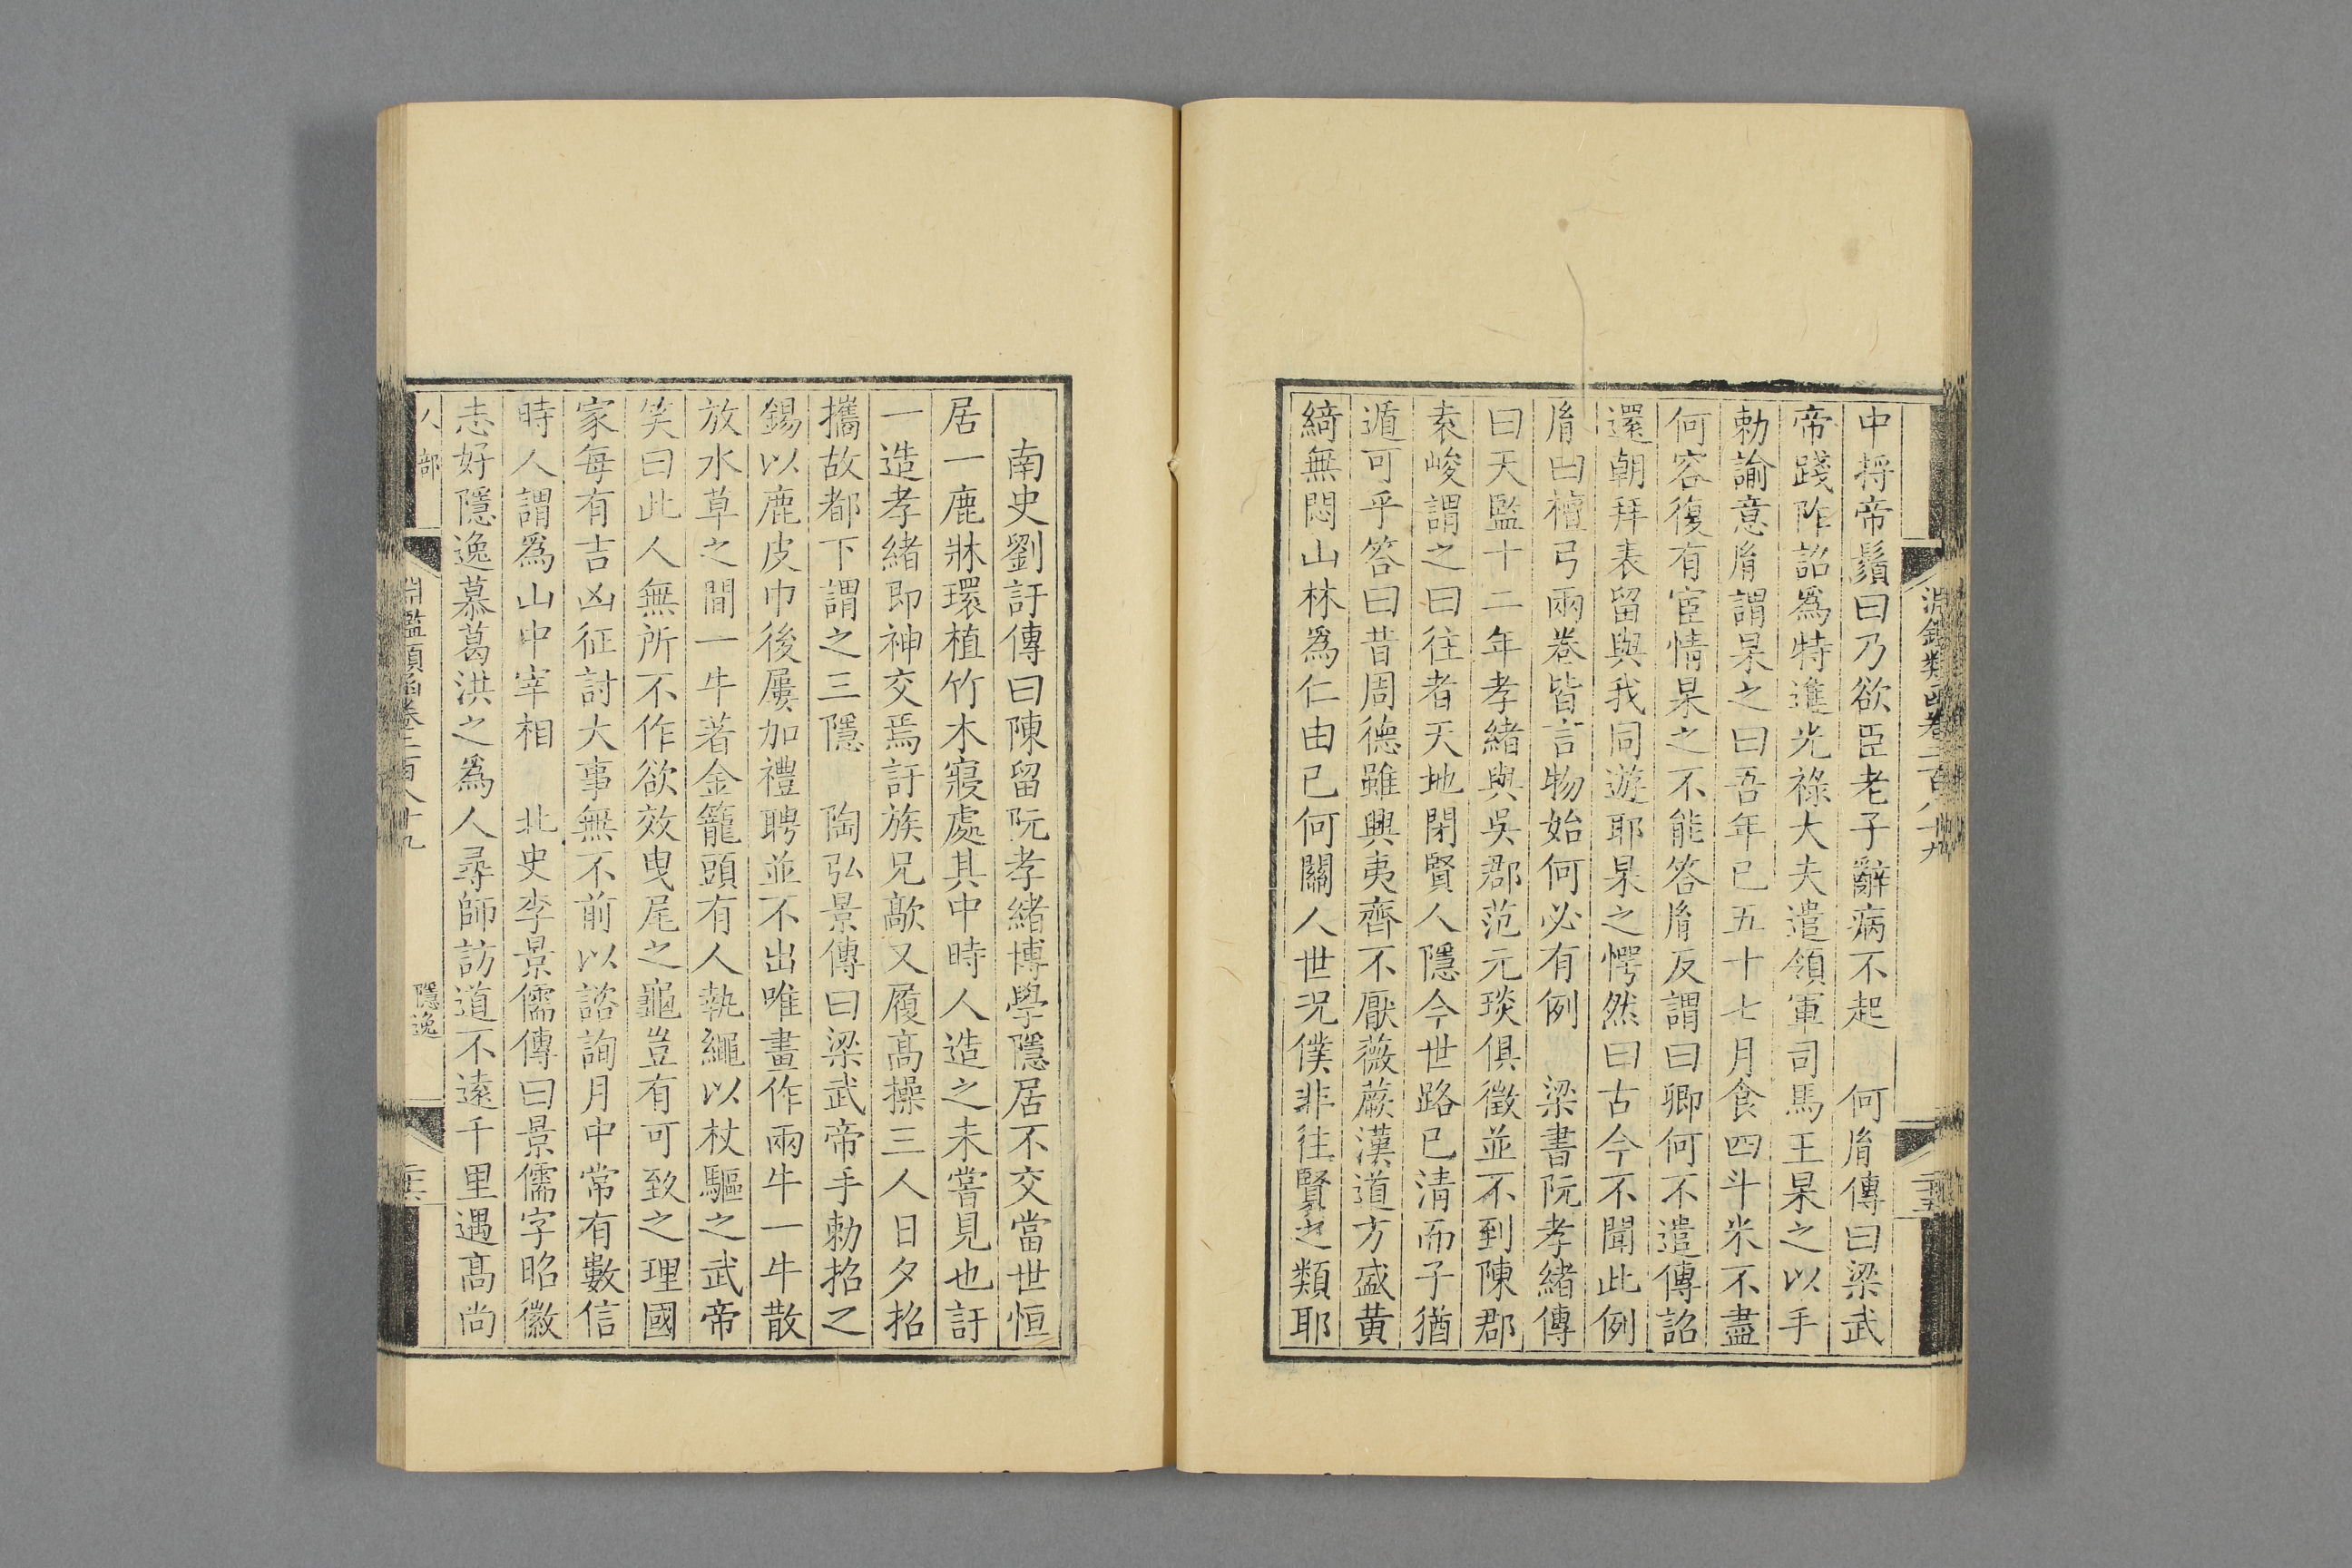 淵鑑類函卷二百八十九
二十五
中捋帝鬚曰乃欲臣老子辭病不起　何胤傳曰梁武
帝踐阼詔爲特進光祿大夫遣領軍司馬王杲之以手
勅諭意胤謂杲之曰吾年已五十七月食四斗米不盡
何容復有宦情杲之不能答胤反謂曰卿何不遣傳詔
還朝拜表留與我同遊耶杲之愕然曰古今不聞此例
胤曰檀弓兩卷皆言物始何必有例　梁書阮孝緒傳
曰天監十二年孝緒與吳郡范元琰俱徵並不到陳郡
袁峻謂之曰往者天地閉賢人隱今世路已清而子猶
遁可乎答曰昔周德雖興夷齊不厭薇蕨漢道方盛黃
綺無悶山林爲仁由已何關人世况僕非往賢之類耶
南史劉訏傳曰陳留阮孝緒博學隱居不交當世恒
居一鹿牀環植竹木寢處其中時人造之未嘗見也訏
一造孝緒即神交焉訏族兄歊又履高操三人日夕招
攜故都下謂之三隱　陶弘景傳曰梁武帝手勅招之
錫以鹿皮巾後屢加禮聘並不出唯畫作兩牛一牛散
放水草之間一牛著金籠頭有人執繩以杖驅之武帝
笑曰此人無所不作欲效曳尾之龜豈有可致之理國
家每有吉凶征討大事無不前以諮詢月中常有數信
時人謂爲山中宰相　北史李景儒傳曰景儒字昭徽
志好隱逸慕葛洪之爲人尋師訪道不遠千里遇高尚
人部
淵鑑類函卷二百八十九
隱逸
二十六